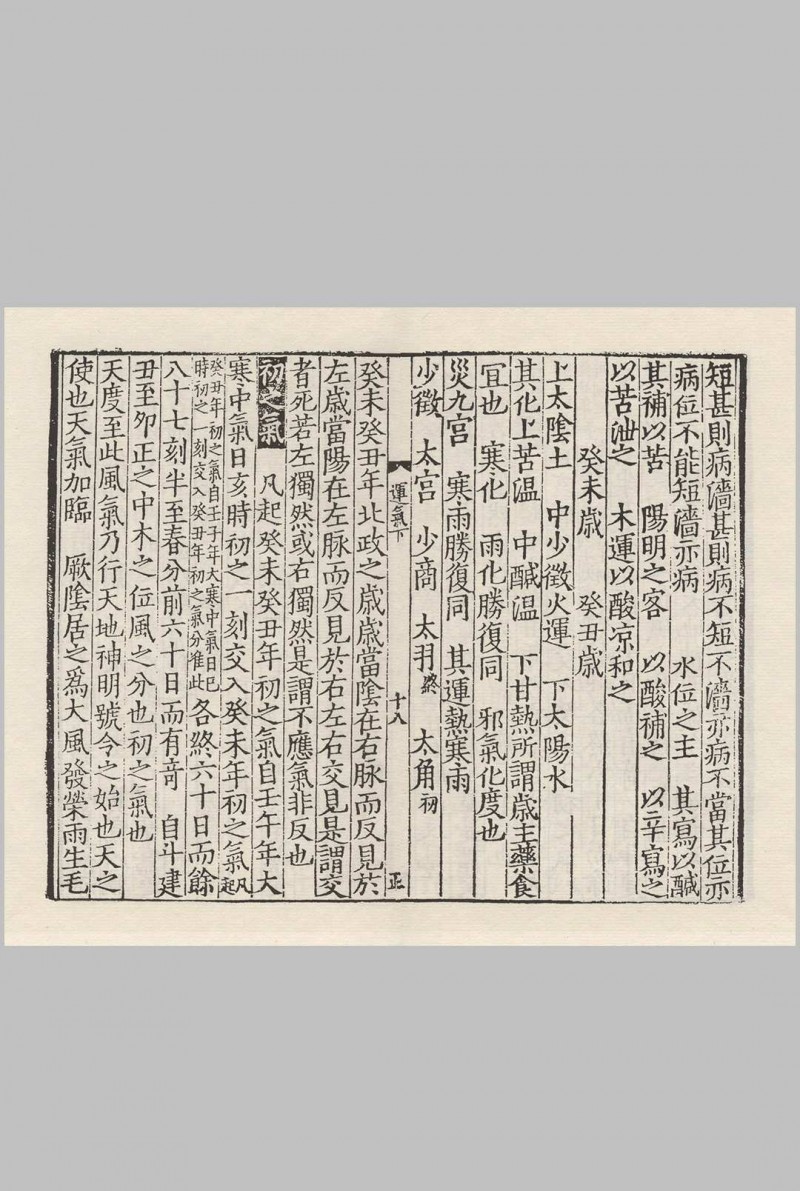 短甚則病濇甚則病不短不濇亦病不當其位亦
病位不能短濇亦病　水位之主　其寫以醎
其補以苦　陽明之客　以酸補之　以辛寫之
以苦泄之　木運以酸凉和之
癸未歲　癸丑歲
上太陰土　中少徵火運　下太陽水
其化上苦温　中醎温　下甘熱所謂歲主藥食
冝也　寒化　雨化勝復同　邪氣化度也
災九宫　寒雨勝復同　其運熱寒雨
少徵　太宫　少商　太羽終　太角初
運氣下　十八　正
癸未癸丑年北政之歲歲當陰在右脉而反見於
左歲當陽在左脉而反見於右左右交見是謂交
者死若左獨然或右獨然是謂不應氣非反也
初之氣　凡起癸未癸丑年初之氣自壬午年大
寒中氣日亥時初之一刻交入癸未年初之氣凡起
癸丑年初之氣自壬子年大寒中氣日巳
時初之一刻交入癸丑年初之氣分准此
各終六十日而餘
八十七刻半至春分前六十日而有竒　自斗建
丑至夘正之中木之位風之分也初之氣也
天度至此風氣乃行天地神明號令之始也天之
使也天氣加臨　厥陰居之爲大風發榮雨生毛